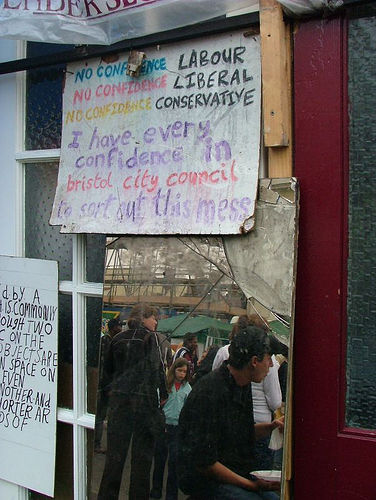 NO CONFIDENCE LABOUR
NO CONFIDENCE LIBERAL
NO CONFIDENCE CONSERVATIVE
I have every
confidence in
bristol city council
to sort out this mess
BY A
IS COMMONLY
TWO
ON THE
OBJECTS ARE
SPACE ON
EVEN
NOTHER AND
ORTER AR
DS OF